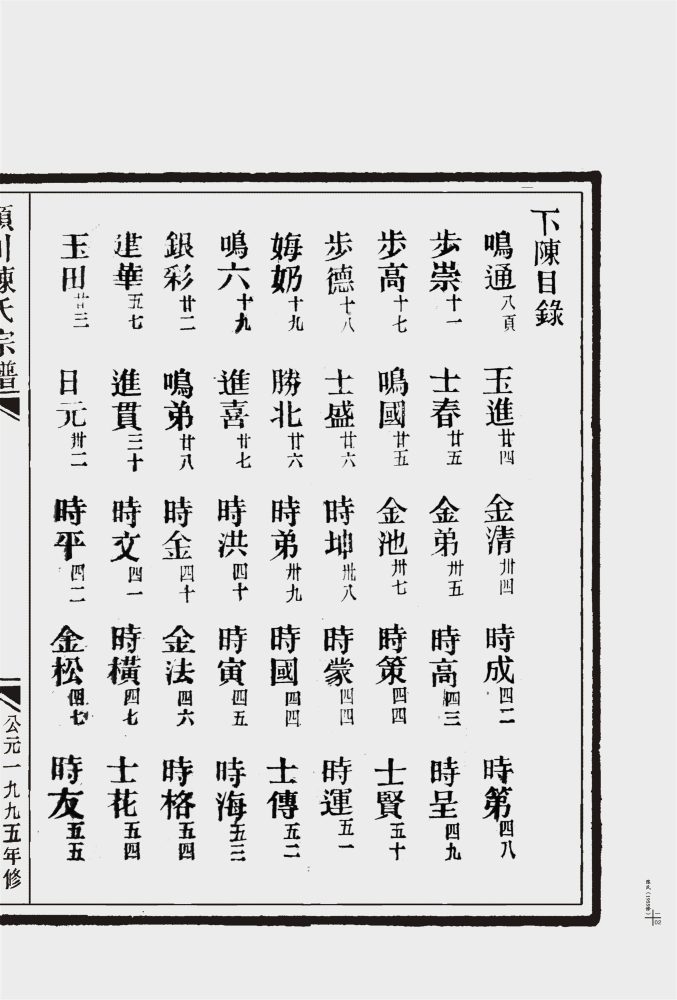 下陳目錄
鳴通八頁 玉進廿四 金清卅四 時成四二 時第四八
步崇十一 士春廿五 金弟卅五 時高四三 時呈四九
步高十七 鳴國廿五 金池卅七 時策四四 士賢五十
步德十八 士盛廿六 時坤卅八 時蒙四四 時運五一
姆奶十九 勝北廿六 時弟卅九 時國四四 士傳五二
鳴六十九 進喜廿七 時洪四十 時寅四五 時海五三
銀彩廿二 鳴弟廿八 時金四十 金法四六 時格五四
建華五七 進貫三十 時文四一 時橫四七 士花五四
玉田廿三 日元卅二 時平四二 金松四七 時友五五
川陳氏宗譜
公元一九九五年修